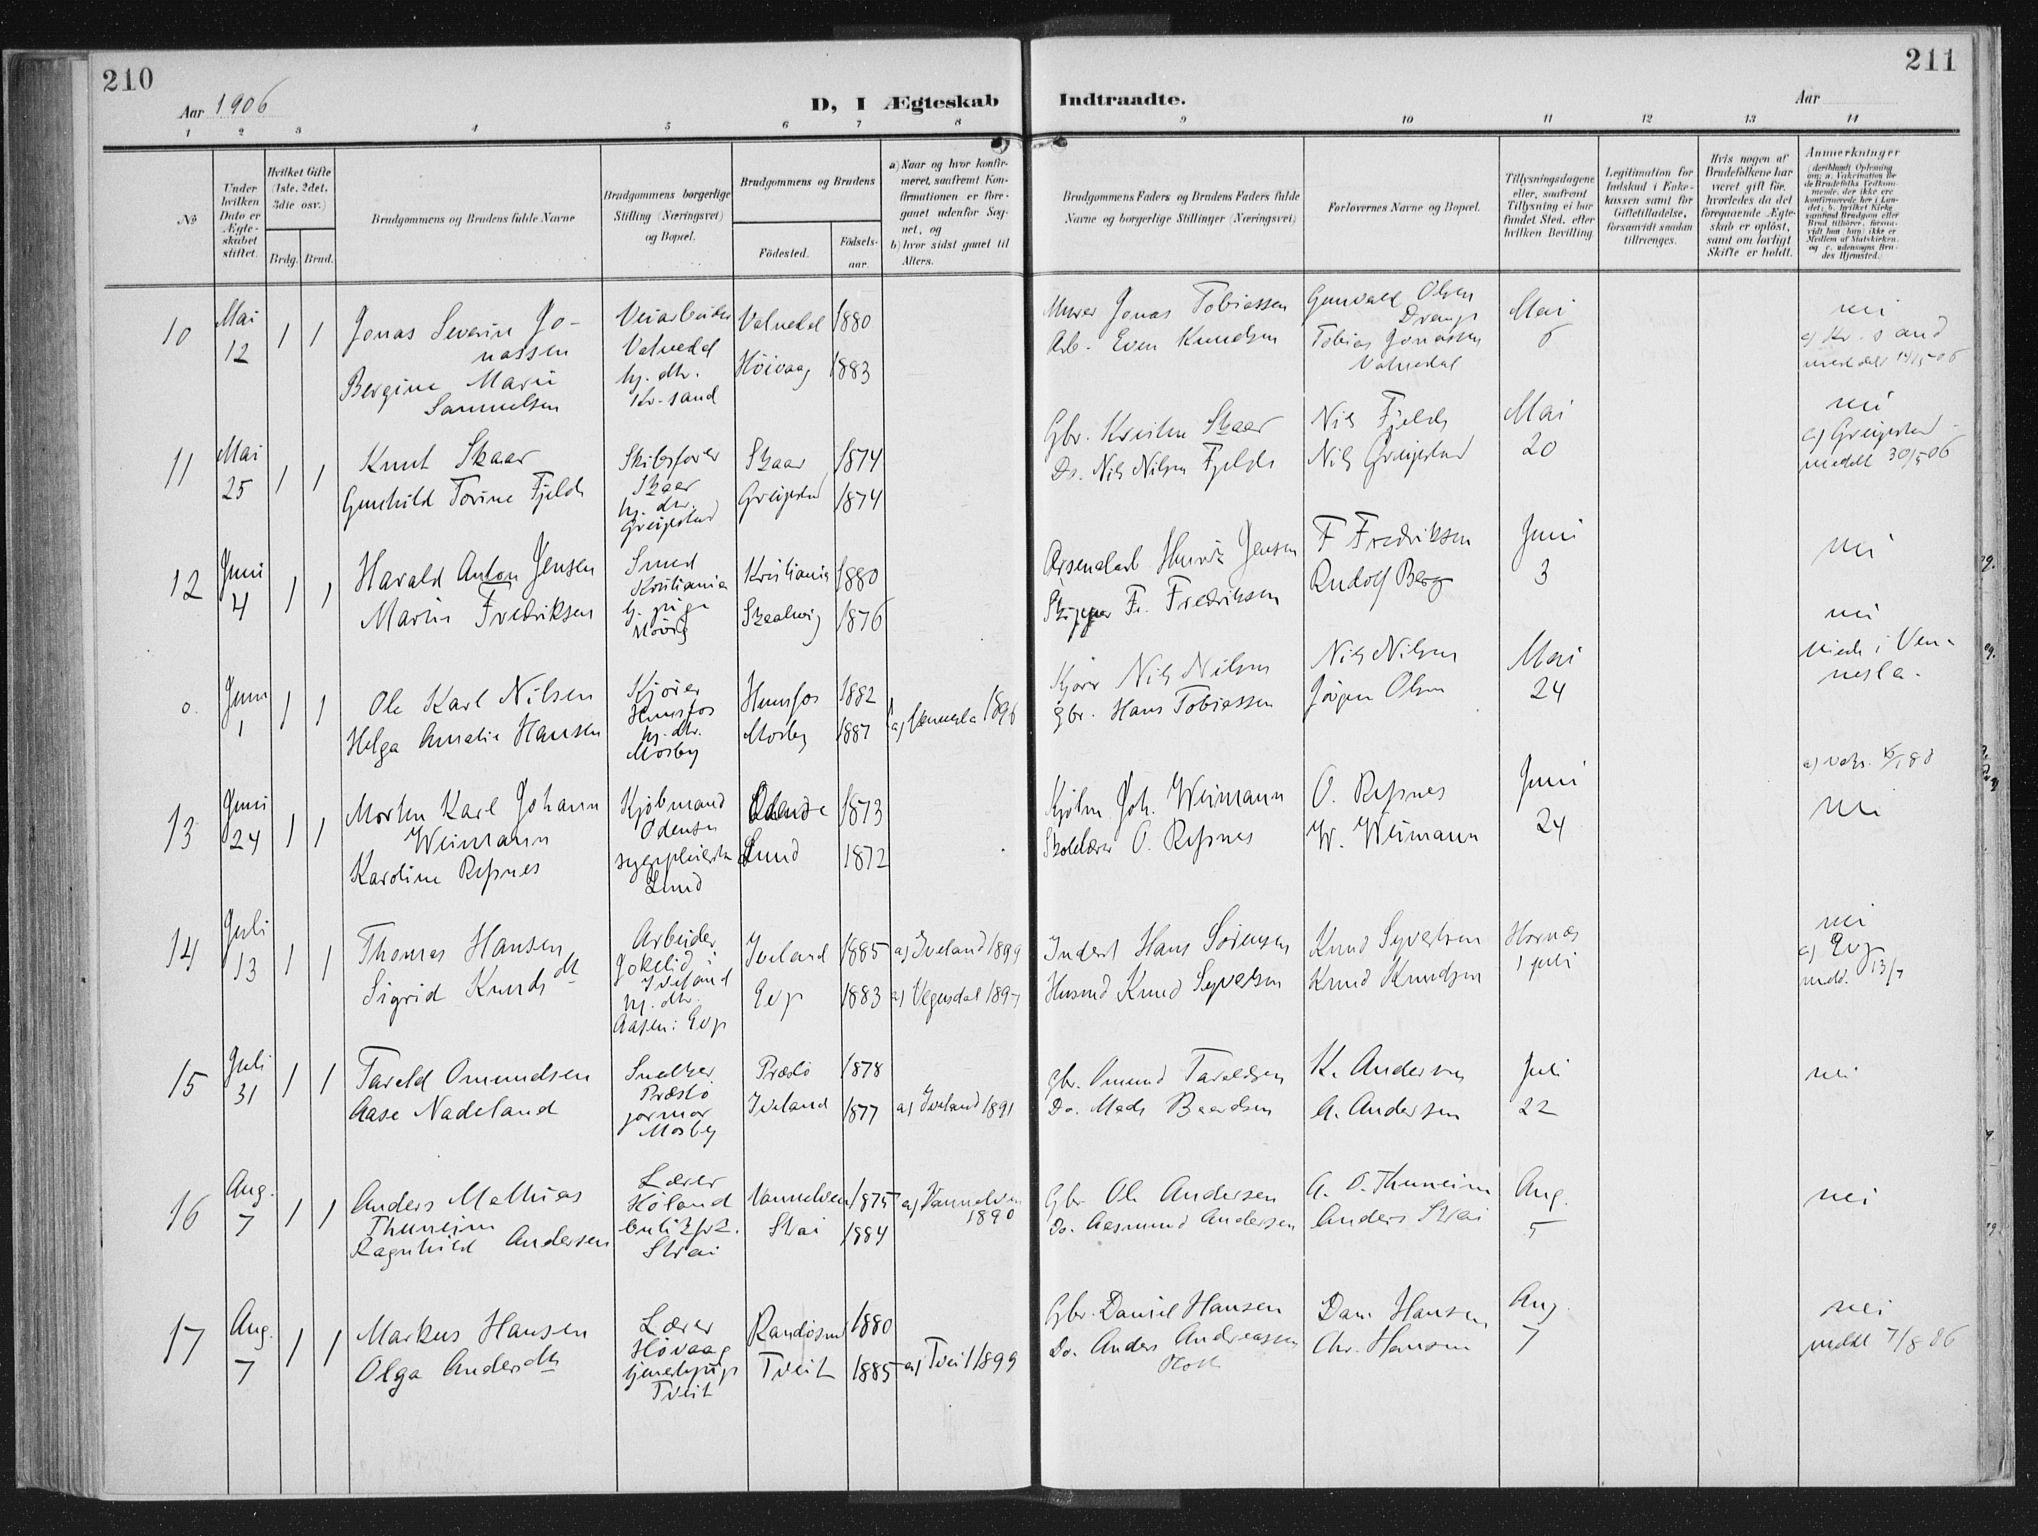 210
Aar 1906
D, I Ægteskab
Indtraadte.
Aar
211
1 2 3 4 5 6 7 8 9 10 11 12 13 14
No
Under
hvilken
Dato er
Ægte-
skabet
stiftet.
Hvilket Gifte
(1ste, 2det,
3die osv.)
Brdg.
Brud.
Brudgommens og Brudens fulde Navne
Brudgommens borgerlige
Stilling (Næringsvei)
og Bopæl.
Brudgommens og Brudens
Födested.
Födsels-
aar.
a) Naar og hvor konfir-
meret, saafremt Kon-
firmationen er fore-
gaaet udenfor Sog-
net, og
b) hvor sidst gaaet til
Alters.
Brudgommens Faders og Brudens Faders fulde
Navne og borgerlige Stillinger (Næringsvei)
Forlovernes Navne og Bopæl.
Tillysningsdagene
eller, saafremt
Tillysning ei har
fundet Sted, efter
hvilken Bevilling.
Legitimation for
Indskud i Enke-
kassen samt for
Giftetilladelse,
forsaavidt saadan
tiltrænges.
Hvis nogen af
Brudefolkene har
været gift för,
hvorledes da det
foregaaende Ægte-
skab er oplöst,
samt om lovligt
Skifte er holdt.
Anmerkninger
10
Mai
12
1 1
Jonas Severin Jo-
nassen
Bergine Marie
Samuelsen
Veiarbeider
Valnedal
hj. dtr.
Kr-sand
Valnedal 1880
Höivaag 1883
Murer Jonas Tobiassen
Arb. Even Knudsen
Gunvald Olsen
Drangs
Tobias Jonassen
Valnedal
Mai
6
nei
c) Kr. sand
11
Mai
25
1 1
Knut Skaar
Gunhild Torine Fjelds
Skibsfører
Skaar
hj. dtr.
Greipstad
Skaar 1874
Greipstad 1874
Gbr. Kristen Skaar
Do. Nils Nilsen Fjelds
Nils Fjelds
Nils Greipstad
Mai
20
nei
c) Greipstad
meddelt 30/5 06
12
Juni
4
1 1
Harald Anton Jensen
Marie Fredriksen
Smed
Kristiania
Kristiania 1880
Skaalevig 1876
Arsenalarb Henrik Jensen
Skipper Fr. Fredriksen
F Fredriksen
Rudolf Berg
Juni
3
nei
o.
Juni
1
1 1
Ole Karl Nilsen
Helga Amalie Hansen
Kjører
Hunsfos
hj. dtr.
Mosby
Hunsfos 1882
Mosby 1887
a) Vennesla 1896
Kjörer Nils Nilsen
Gbr. Hans Tobiassen
Nils Nilsen
Jörgen Olsen
Mai
24
nei
viede i Ven-
nesla.
13
Juni
24
1 1
Morten Karl Johann
Weimann
Karoline Refsnes
Kjöbmand
Odense
sygepleierske
Lund
Odense 1873
Lund 1872
Kjøbm Joh. Weimann
Skolelærer O. Refsnes
O. Refsnes
W. Weimann
Juni
24
nei
14
Juli
13
1 1
Thomas Hansen
Sigrid Knudsdt
Arbeider
Jokelid i
Iveland
hj. dtr.
Aasen i Evje
Iveland 1885
Evje 1883
a) Iveland 1899
a) Vegusdal 1897
Inderst Hans Sörensen
Husmd Knud Syversen
Knud Syversen
Knud Knudsen
Hornæs
1 juli
nei
c) Evje
medd. 13/7
15
Juli
31
1 1
Tarald Omundsen
Aase Nadeland
Snedker
Præstø
jormor
Mosby
Præstö 1878
Iveland 1877
a) Iveland 1891
Gbr. Omund Taraldsen
Do. Mads Baardsen
K. Andersen
A. Andersen
Juli
22
nei
16
Aug.
7
1 1
Anders Mathias
Thuneim
Ragnhild Andersen
Lærer
Höland
Strai
Vannelven 1875
Strai 1884
a) Vannelven
1890
Gbr. Ole Andersen
Do. Aasmund Andersen
A. O. Thuneim
Anders Strai
Aug.
5
nei
17
Aug.
7
1 1
Markus Hansen
Olga Andersdtr
Lærer
Hövaag
tjenestepige
Tveit
Randösund 1880
Tveit 1885
a) Tveit 1899
Gbr. Daniel Hansen
Do. Anders Andreassen
Dan. Hansen
Chr. Hansen
Aug.
7
nei
meddt 7/8 06